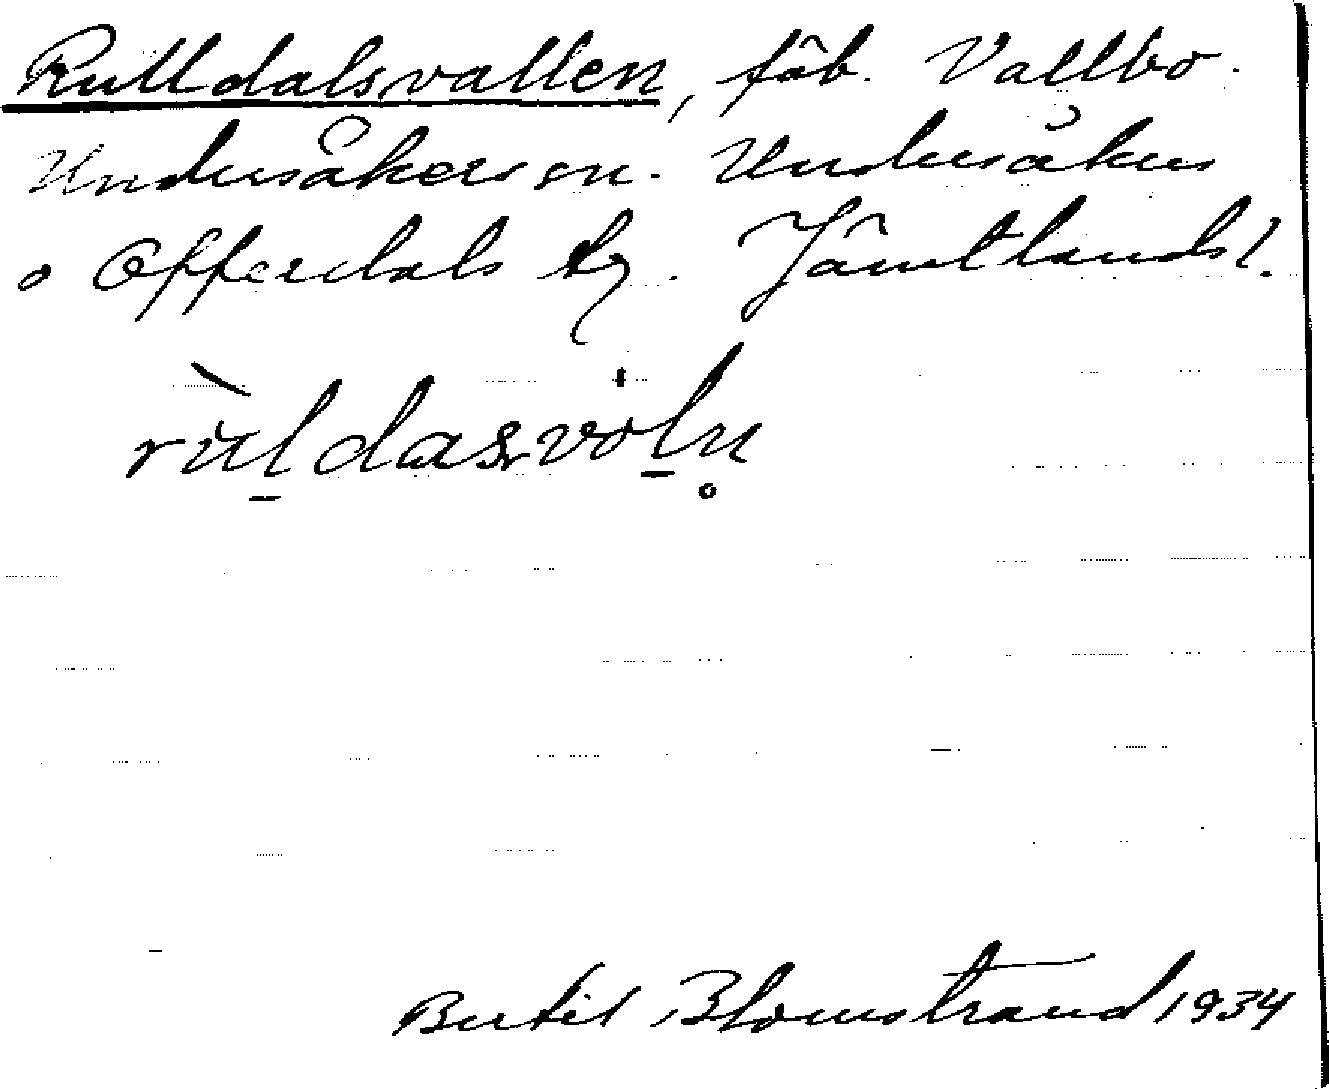 Rulldalsvallen, fäb. Vallbo.
Undersåkers sn. Undersåkers
o Offerdals tg. Jämtlands l.
rùl̠dasvol̠n̥
Bertil Blomstrand 1934